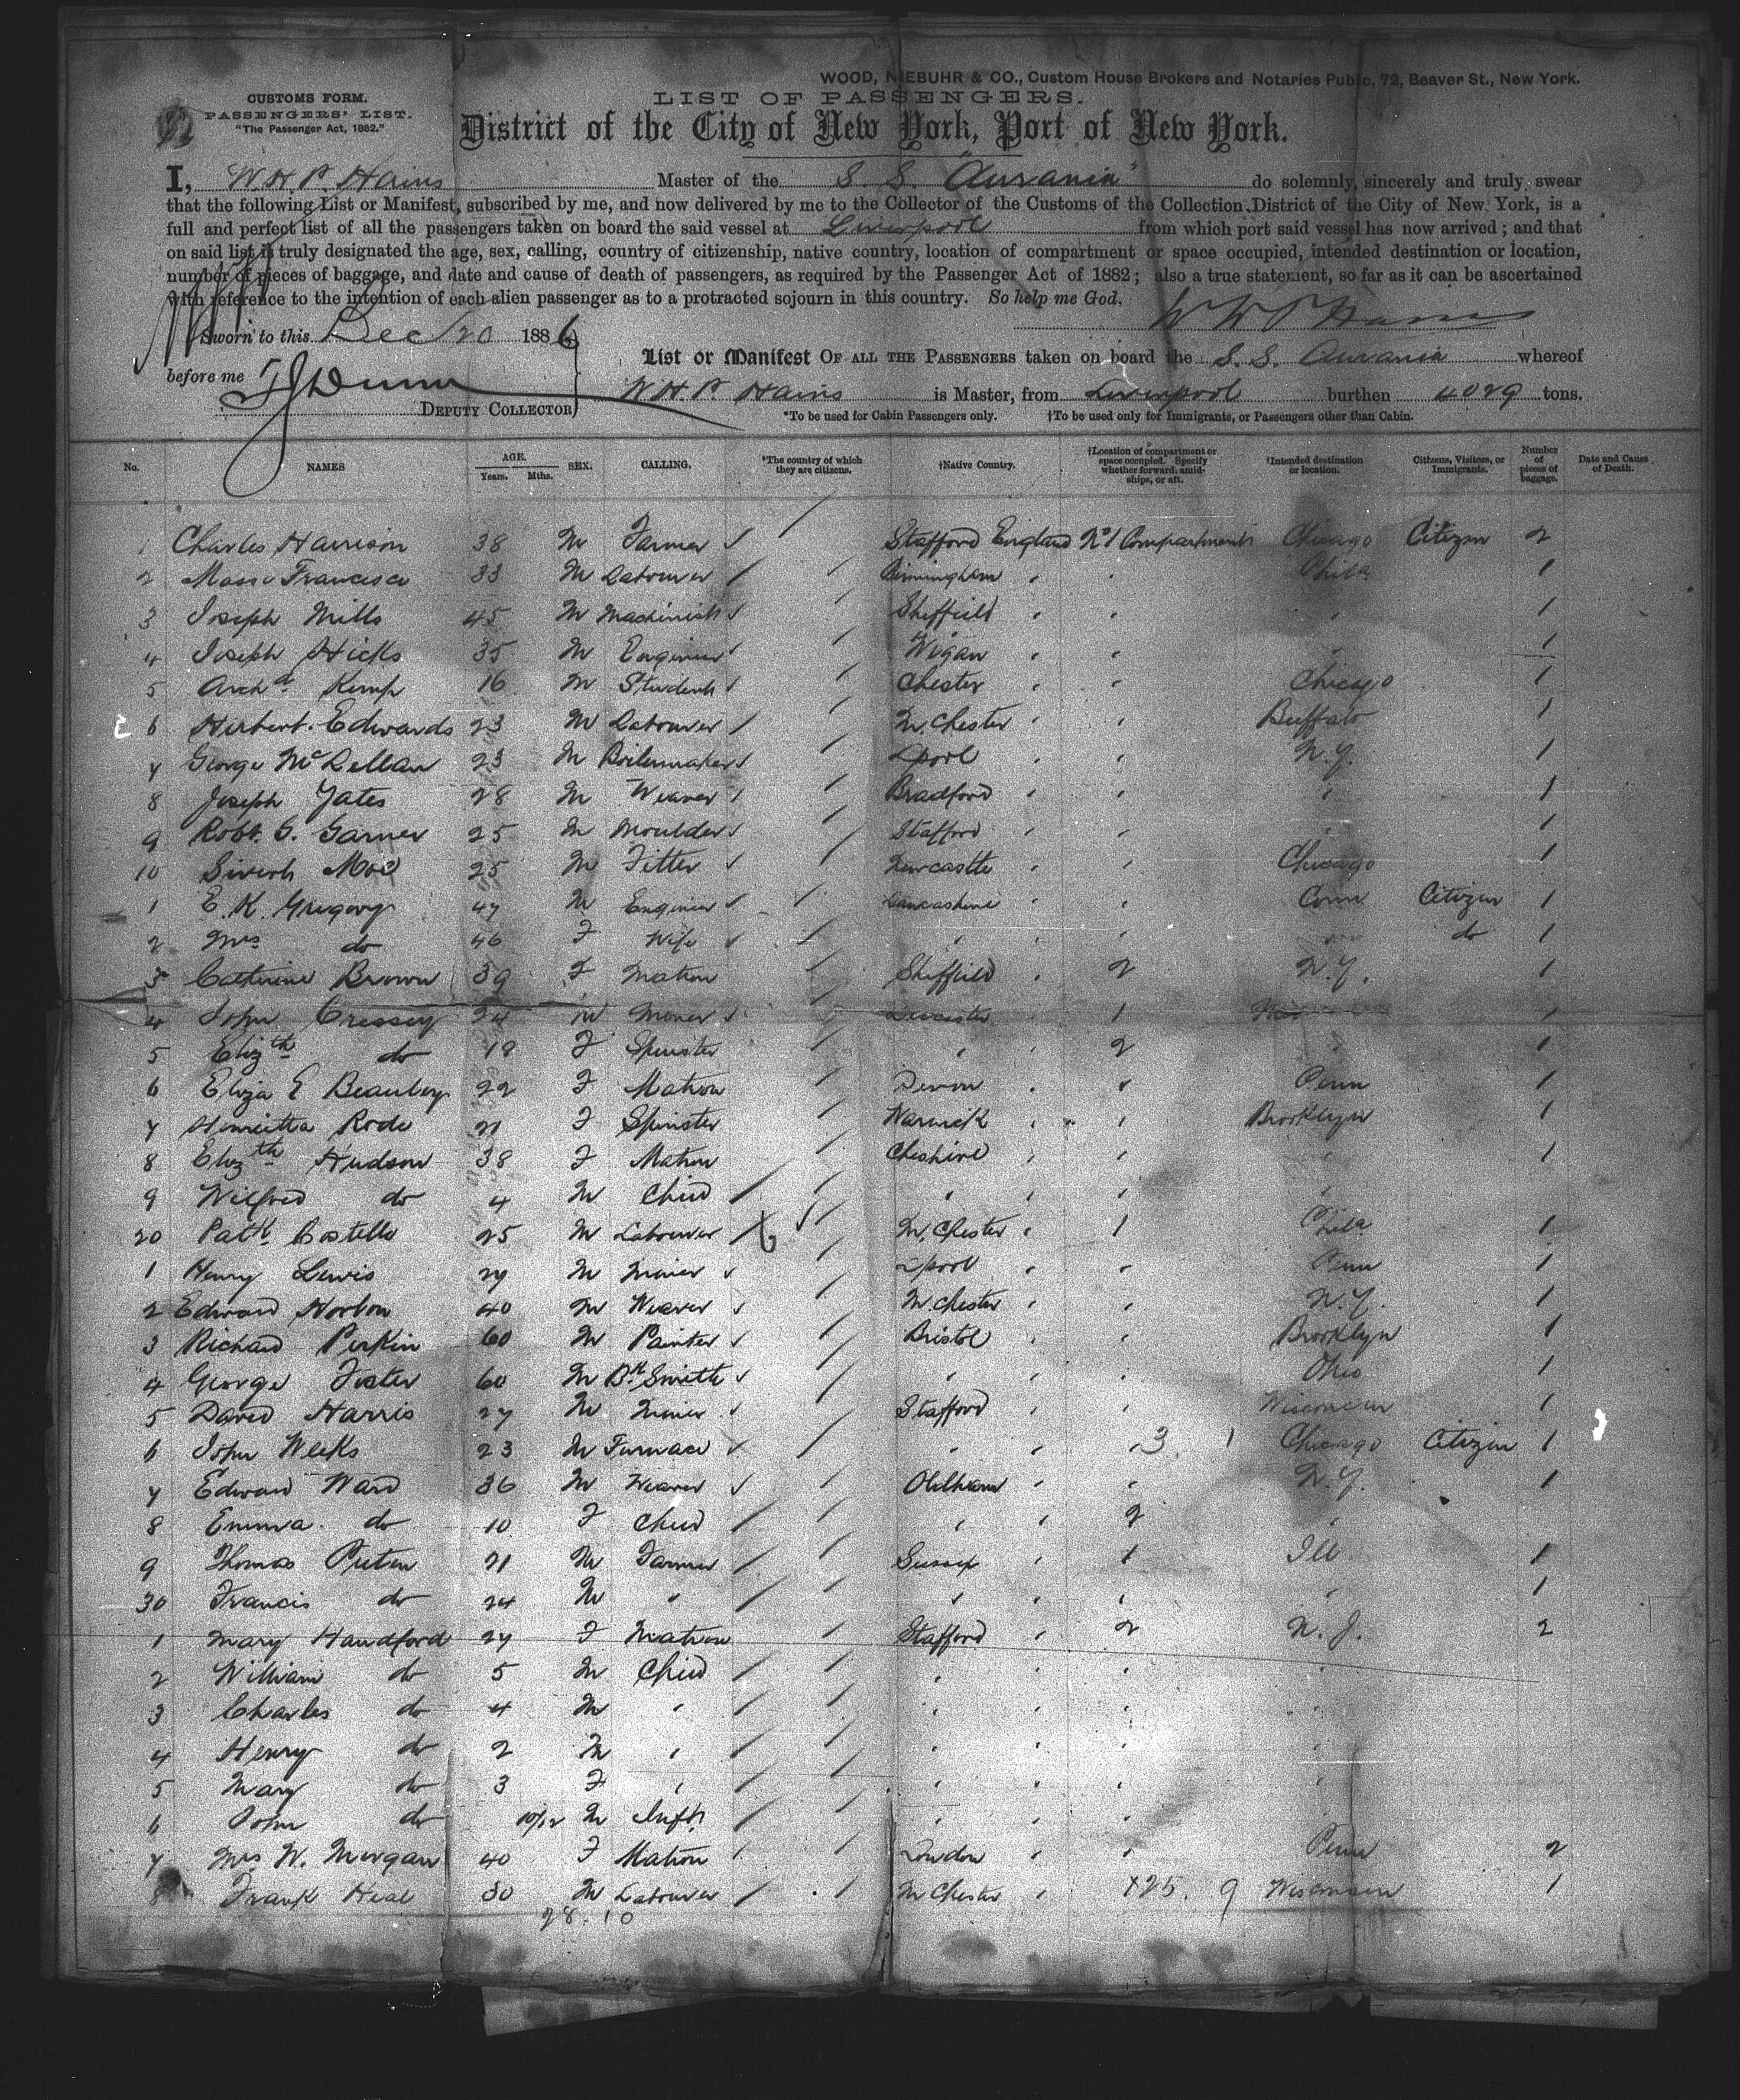 WOOD, NIEBUHR & CO., Custom House Brokers and Notaries Public, 72, Beaver St., New York.
CUSTOMS FORM.
PASSENGERS' LIST.
"The Passenger Act, 1882."
LIST OF PASSENGERS.
District of the City of New York, Port of New York.
I, W. H. P. Hains Master of the S. S. "Aurania" do solemnly, sincerely and truly swear
that the following List or Manifest, subscribed by me, and now delivered by me to the Collector of the Customs of the Collection District of the City of New York, is a
full and perfect list of all the passengers taken on board the said vessel at Liverpool from which port said vessel has now arrived; and that
on said list is truly designated the age, sex, calling, country of citizenship, native country, location of compartment or space occupied, intended destination or location,
number of pieces of baggage, and date and cause of death of passengers, as required by the Passenger Act of 1882; also a true statement, so far as it can be ascertained
with reference to the intention of each alien passenger as to a protracted sojourn in this country. So help me God.
W H P Hains
Sworn to this Dec 20 1886
before me
DEPUTY COLLECTOR
List or Manifest OF ALL THE PASSENGERS taken on board the S. S. Aurania whereof
W. H. P. Hains is Master, from Liverpool burthen 4029 tons.
*To be used for Cabin Passengers only. †To be used only for Immigrants, or Passengers other than Cabin.
No. NAMES AGE. Years. Mths. SEX. CALLING. *The country of which they are citizens. †Native Country. †Location of compartment or space occupied. Specify whether forward, amidships, or aft. †Intended destination or location. Citizens, Visitors, or Immigrants. Number of pieces of baggage. Date and Cause of Death.
1 Charles Harrison 38 M Farmer Stafford England No 1 Compartment Chicago Citizen 2
2 Francisco 33 M Labourer Birmingham " " Phila 1
3 Joseph Mills 45 M Machinist Sheffield " " " 1
4 Joseph Hicks 35 M Engineer Wigan " " " 1
5 Archd Kemp 16 M Student Chester " " Chicago 1
6 Herbert Edwards 23 M Labourer M.chester " " Buffalo 1
7 George McLellan 23 M Boilermaker Lpool " " N.Y. 1
8 Joseph Yates 28 M Weaver Bradford " " " 1
9 Robt. G. Garner 25 M Moulder Stafford " " " 1
10 Moe 25 M Fitter Newcastle " " Chicago 1
1 E. K. Gregory 47 M Engineer Lancashire " " Conn Citizen 1
2 Mrs do 46 F Wife " " " " do 1
3 Catherine Brown 39 F Matron Sheffield " 2 N.Y. 1
4 John Cressey 24 M Leicester 1
5 Elizth do 18 F Spinster " " 2 " 1
6 Eliza E 22 F Matron Devon " " Penn 1
7 Henrietta Rode 21 F Spinster Warwick " " Brooklyn 1
8 Elizth Hudson 38 F Matron Cheshire " " " 1
9 Wilfred do 4 M Child " " " "
20 Patk Costello 25 M Labourer M.chester " 1 Phila 1
1 Henry Lewis 27 M Miner Lpool " " Penn 1
2 Edward Horton 40 M Weaver M.chester " " N.Y. 1
3 Richard Perkin 60 M Painter Bristol " " Brooklyn 1
4 George Foster 60 M Bk Smith " " " Ohio 1
5 David Harris 27 M Miner Stafford " " Wisconsin 1
6 John Weeks 23 M Furnace " " " 3. 1 Chicago Citizen 1
7 Edward Ward 36 M Weaver Oldham " " N.Y. 1
8 Emma do 10 F Child " " 2 "
9 Thomas 21 M Farmer Sussex " 1 Ill 1
30 Francis do 24 M " " " " " 1
1 Mary Handford 27 F Matron Stafford " 2 N.J. 2
2 William do 5 M Child " " " "
3 Charles do 4 M " " " " "
4 Henry do 2 M " " " " "
5 Mary do 3 F " " " " "
6 John do 10/12 M Inft " " " "
7 Mrs W. Morgan 40 F Matron London " " Penn 2
8 Frank Heal 30 M Labourer M chester " 125. 9 Wisconsin 1
28. 10